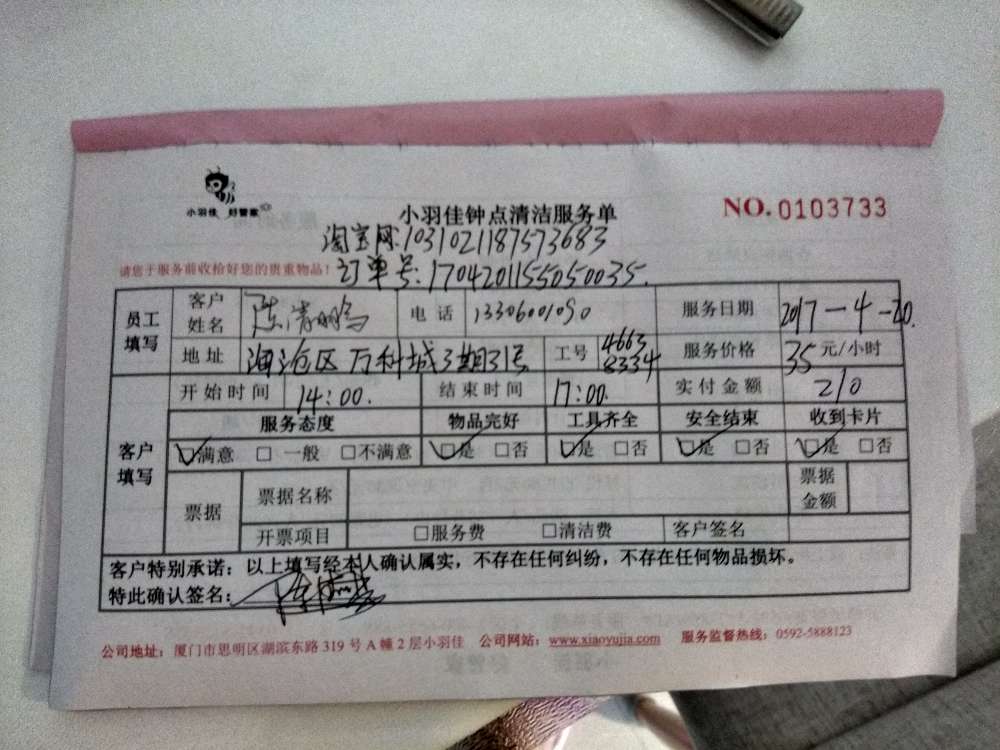 小羽佳 好管家
小羽佳钟点清洁服务单
NO. 0103733
淘宝网:1031021187573683
请您于服务前收拾好您的贵重物品!
订单号:1704201155050035.
员工填写 客户姓名 陈清鹏 电话 13306001090 服务日期 2017-4-20.
地址 海沧区万科城3期31号 工号 4663 8334 服务价格 35元/小时
客户填写 开始时间 14:00. 结束时间 17:00. 实付金额 210
服务态度 物品完好 工具齐全 安全结束 收到卡片
☑满意 □ 一般 □不满意 ☑是 □否 ☑是 □否 ☑是 □否 ☑是 □否
票据 票据名称 票据金额
开票项目 □服务费 □清洁费 客户签名
客户特别承诺:以上填写经本人确认属实,不存在任何纠纷,不存在任何物品损坏。
特此确认签名:
公司地址:厦门市思明区湖滨东路 319 号 A 幢 2 层小羽佳 公司网站:www.xiaoyujia.com 服务监督热线:0592-5888123